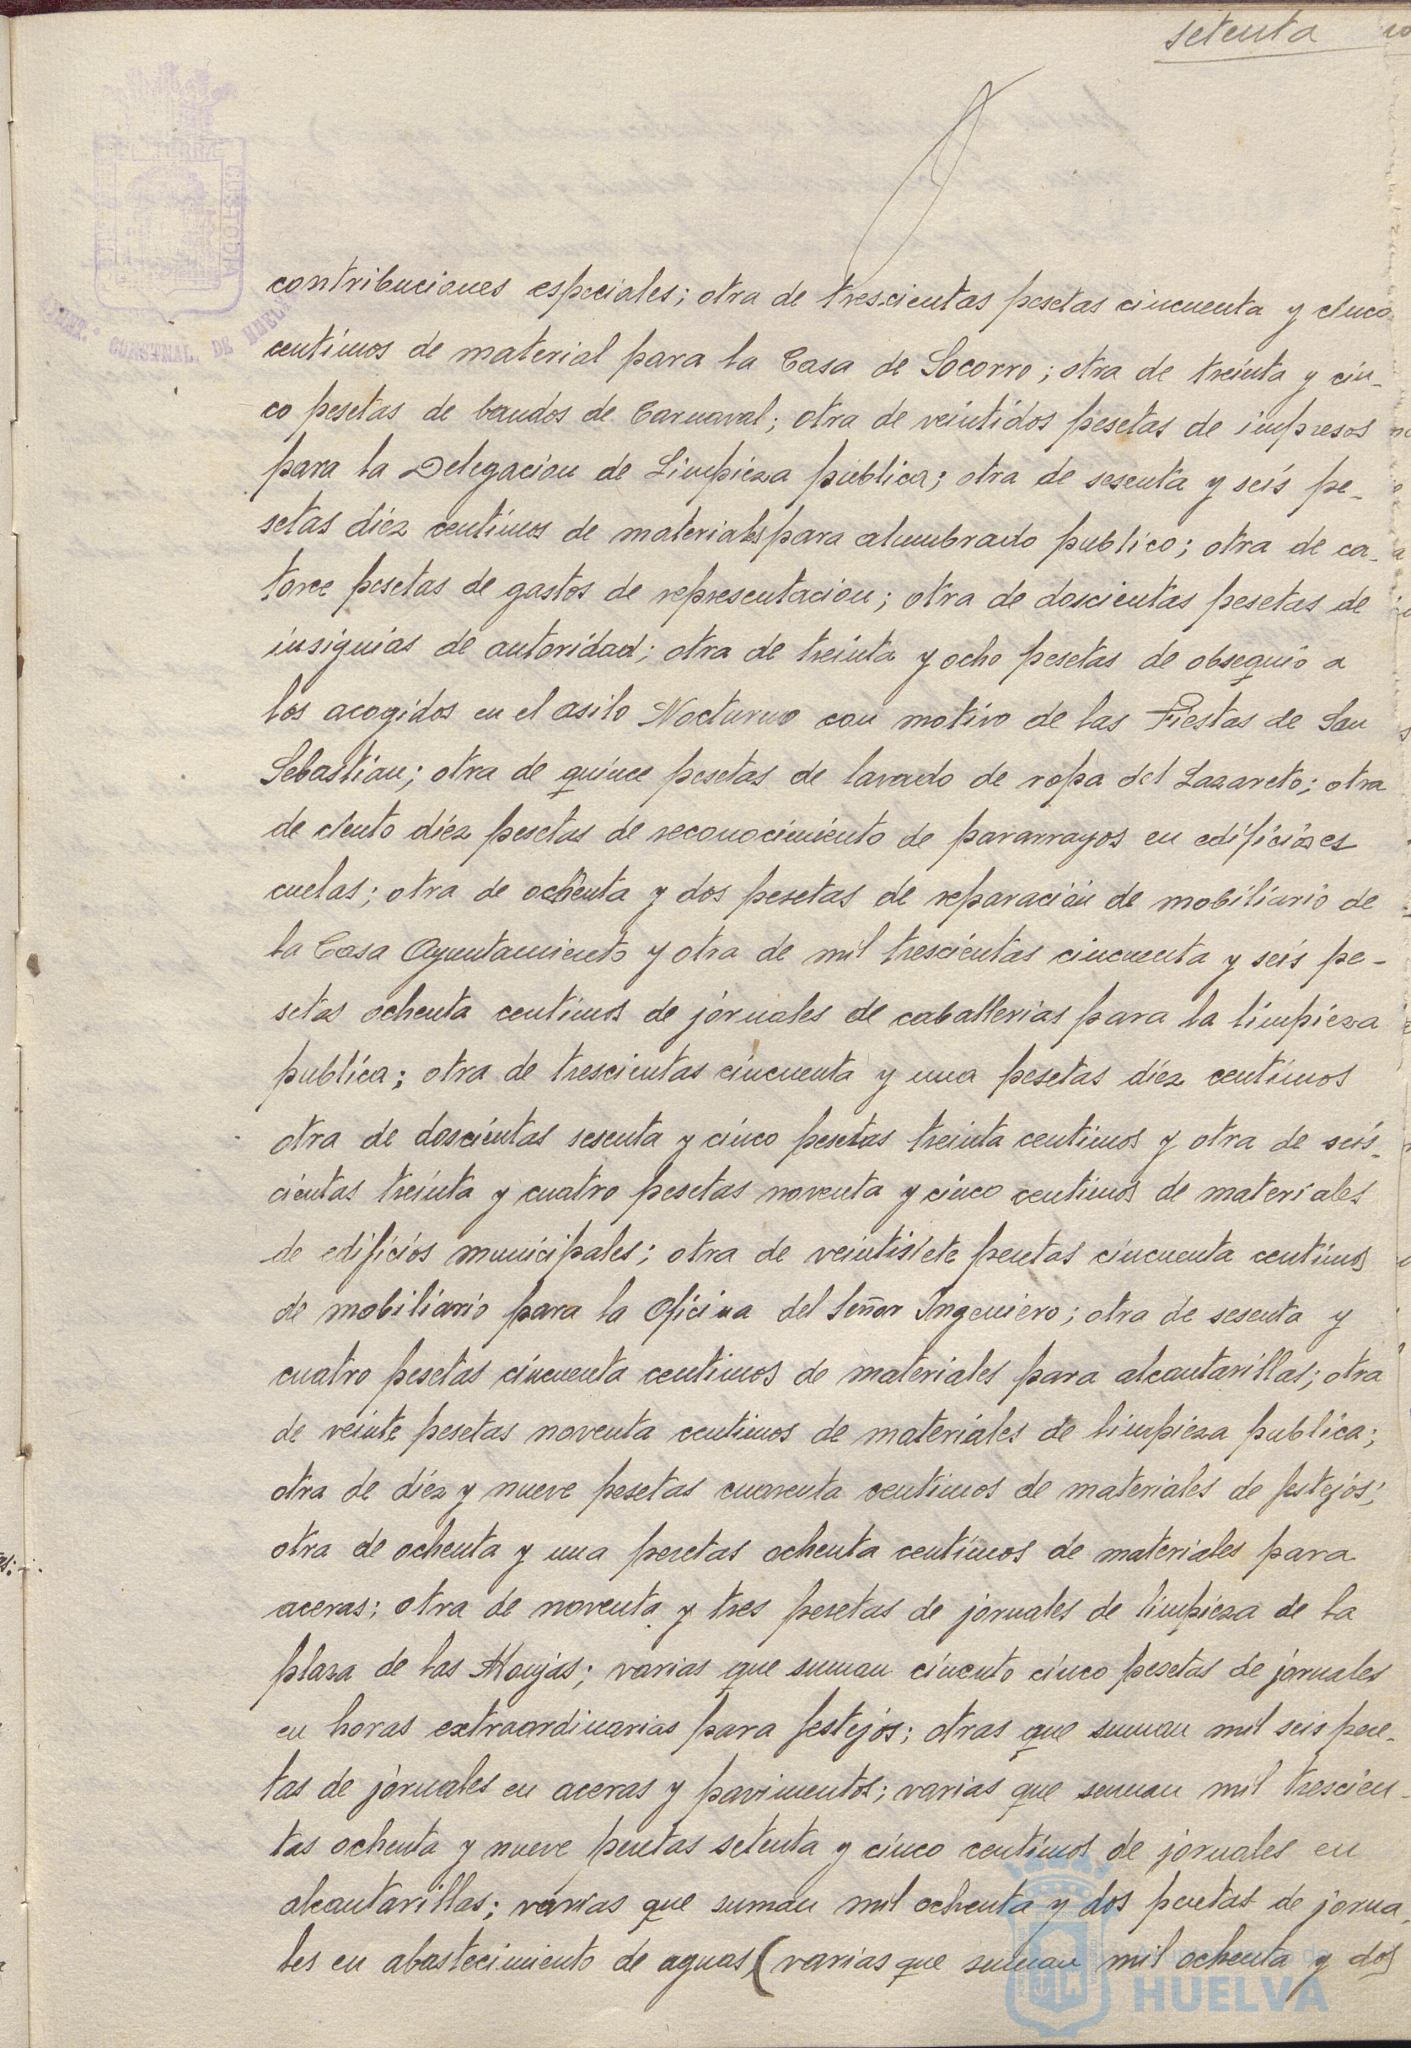 setenta
PORTUS MARIS ET TERRAE CUSTODIA
AYUNT.º CONSTNAL. DE HUELVA
contribuciones especiales; otra de trescientas pesetas cincuenta y cinco
centimos de material para la Casa de Socorro; otra de treinta y cin-
co pesetas de bandos de Carnaval; otra de veintidos pesetas de impresos
para la Delegacion de Limpieza publica; otra de sesenta y seis pe-
setas diez centimos de materiales para alumbrado publico; otra de ca-
torce pesetas de gastos de representacion; otra de doscientas pesetas de
insignias de autoridad; otra de treinta y ocho pesetas de obsequio a
los acogidos en el asilo Nocturno con motivo de las Fiestas de San
Sebastian; otra de quince pesetas de lavado de ropa del Lazareto; otra
de ciento diez pesetas de reconocimiento de pararrayos en edificios es
cuelas; otra de ochenta y dos pesetas de reparación de mobiliario de
la Casa Ayuntamiento y otra de mil trescientas cincuenta y seis pe-
setas ochenta centimos de jornales de caballerias para la limpieza
publica; otra de trescientas cincuenta y una pesetas diez centimos
otra de doscientas sesenta y cinco pesetas treinta centimos y otra de seis-
cientas treinta y cuatro pesetas noventa y cinco centimos de materiales
de edificios municipales; otra de veintisiete pesetas cincuenta centimos
de mobiliario para la Oficina del Señor Ingeniero; otra de sesenta y
cuatro pesetas cincuenta centimos de materiales para alcantarillas; otra
de veinte pesetas noventa centimos de materiales de limpieza publica;
otra de diez y nueve pesetas cuarenta centimos de materiales de festejos;
otra de ochenta y una pesetas ochenta centimos de materiales para
aceras; otra de noventa y tres pesetas de jornales de limpieza de la
plaza de las Monjas; varias que suman cincento cinco pesetas de jornales
en horas extraordinarias para festejos; otras que suman mil seis pese-
tas de jornales en aceras y pavimentos; varias que suman mil trescien-
tas ochenta y nueve pesetas setenta y cinco centimos de jornales en
alcantarillas; varias que suman mil ochenta y dos pesetas de jorna-
les en abastecimiento de aguas (varias que suman mil ochenta y dos
HUELVA